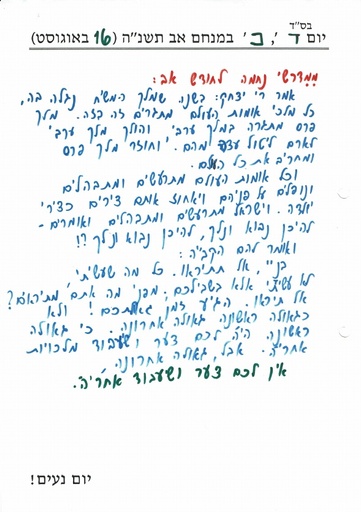 בס"ד
יום ד', כ' במנחם אב תשנ"ה (16 באוגוסט)
ממדרשי נחמה לחודש אב:
אמר ר' יצחק: בשנה שמלך המשיח נגלה בה,
כל מלכי אומות העולם מתגרים זה בזה. מלך
פרס מתגרה במלך ערבי והולך מלך ערבי
לארם ליטול עצה מהם. וחוזר מלך פרס
ומחריב את כל העולם.
וכל אומות העולם מתרעשים ומתבהלים
ונופלים על פניהם ויאחוז אותם צירים כצירי
יולדה. וישראל מתרעשים ומתבהלים ואומרים -
להיכן נבוא ונלך, להיכן נבוא ונלך?!
ואומר להם הקב"ה:
בני, אל תתיראו. כל מה שעשיתי
לא עשיתי אלא בשבילכם. מפני מה אתם מתיראים?
אל תיראו. הגיע זמן גאולתכם! ולא
כגאולה ראשונה גאולה אחרונה. כי גאולה
ראשונה היה לכם צער ושעבוד מלכויות
אחריה. אבל, גאולה אחרונה
אין לכם צער ושעבוד אחריה.
יום נעים!